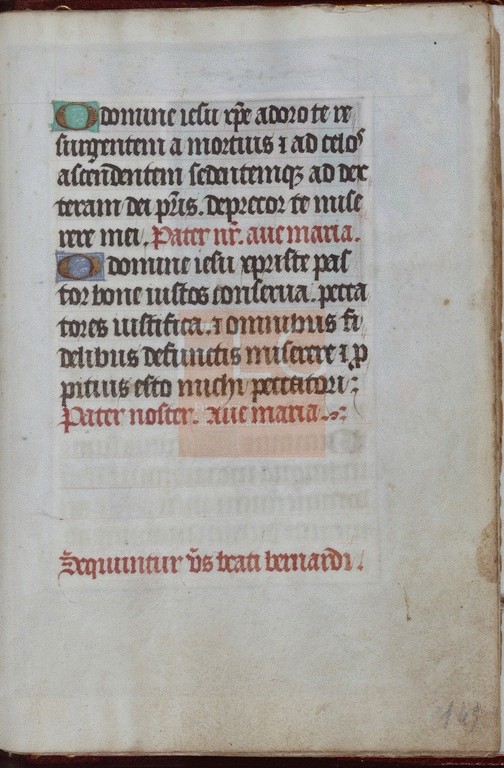 O domine iesu xp̄e adoro te re
surgentem a mortuis ⁊ ad celos
ascendentem sedentemq; ad dex
teram dei pr̄is. deprecor te mise
rere mei. Pater nr̄. aue maria.
O domine iesu xpriste pas
tor bone iustos conserua. pecca
tores iustifica. ⁊ omnibus fi
delibus defunctis miserere ⁊ ꝓ
pitius esto michi peccatori:
Pater noster. Aue maria.
Sequuntur v̄s beati bernardi.